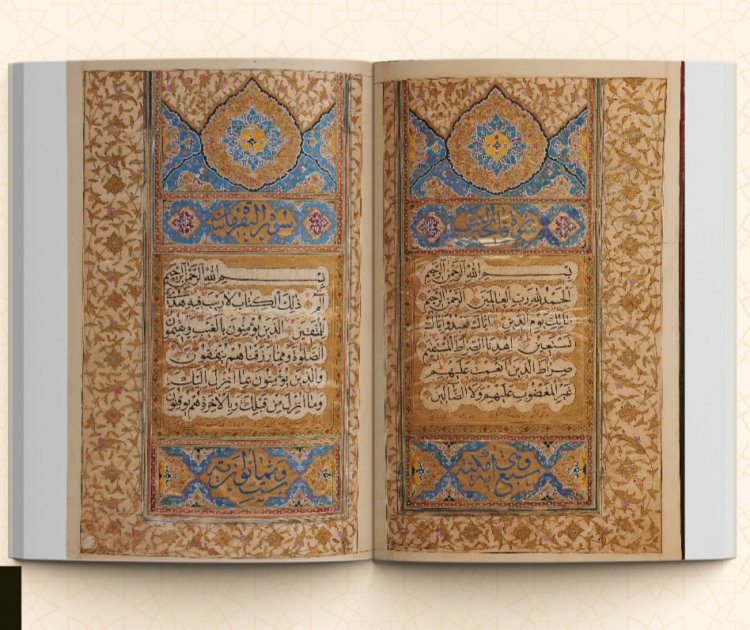 بسم الله الرحمن الرحيم
الحمد لله رب العالمين الرحمن الرحيم
مالك يوم الدين اياك نعبد واياك
نستعين اهدنا الصراط المستقيم
صراط الذين انعمت عليهم
غير المغضوب عليهم ولا الضالين
وهي مكية
سبع آية
سورة البقرة
بسم الله الرحمن الرحيم
الم ذلك الكتاب لا ريب فيه هدى
للمتقين الذين يؤمنون بالغيب ويقيمون
الصلوة ومما رزقناهم ينفقون
والذين يؤمنون بما انزل اليك
وما انزل من قبلك وبالاخرة هم يوقنون